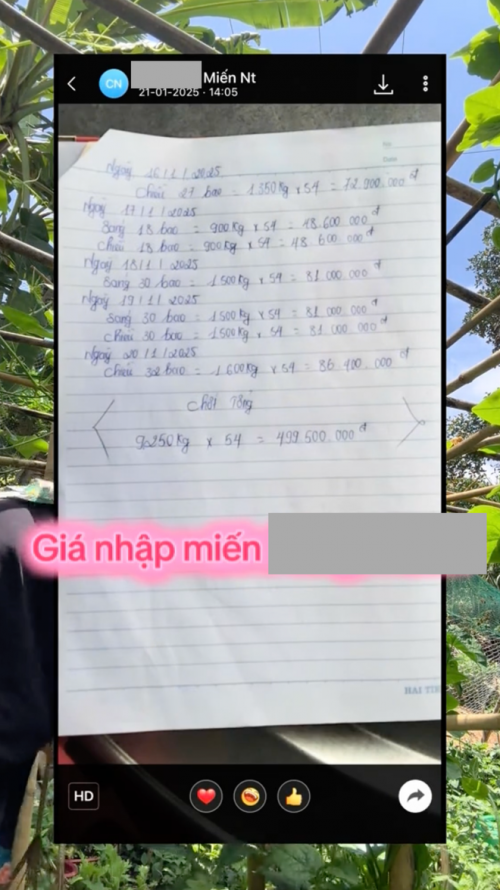 CN
Miến Nt
21-01-2025 · 14:05
No
Date
Ngày 16/1/2025
Chiều 27 bao = 1350Kg x 54 = 72.900.000đ
Ngày 17/1/2025
Sáng 18 bao = 900Kg x 54 = 48.600.000đ
Chiều 18 bao = 900Kg x 54 = 48.600.000đ
Ngày 18/1/2025
Sáng 30 bao = 1500Kg x 54 = 81.000.000đ
Ngày 19/1/2025
Sáng 30 bao = 1500Kg x 54 = 81.000.000đ
Chiều 30 bao = 1500Kg x 54 = 81.000.000đ
Ngày 20/1/2025
Chiều 32 bao = 1600Kg x 54 = 86.400.000đ
Chốt Tổng
9.250Kg x 54 = 499.500.000đ
Giá nhập miến
HD